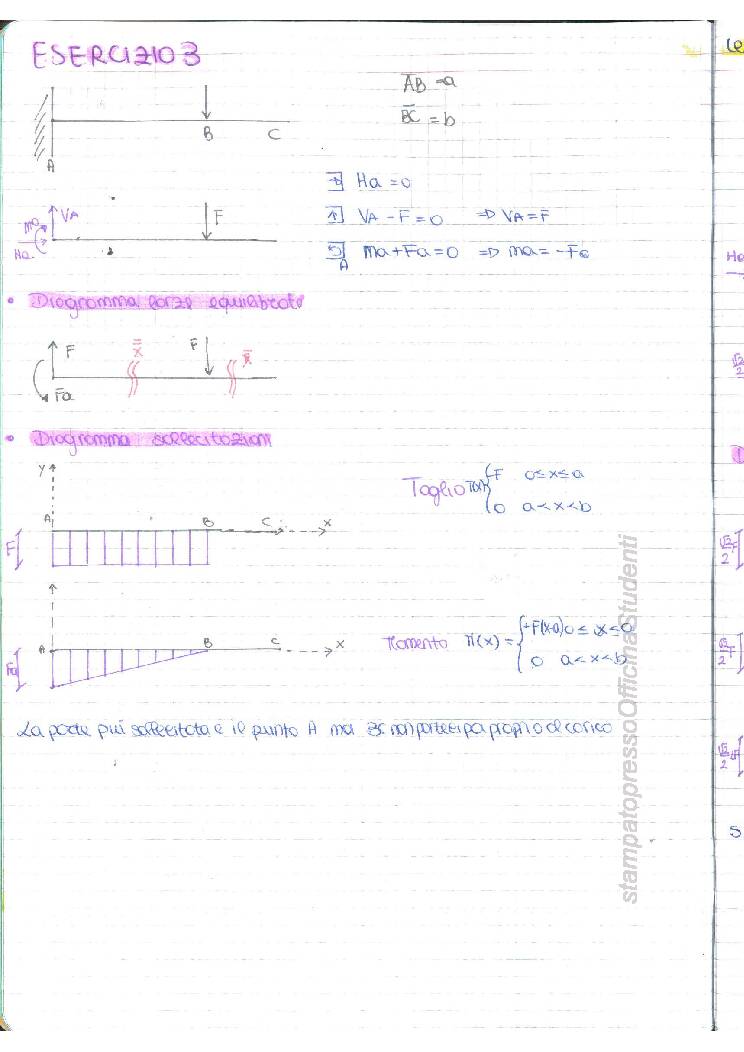 ESERCIZIO 3
AB = a
BC = b
B C
A
Ha = 0
VA - F = 0 ⇒ VA = F
A ma + Fa = 0 ⇒ ma = -Fa
VA F
ma
Ha
• Diagramma forze equilibrate
F x̄ F x̄
Fa
• Diagramma sollecitazioni
y
A B C x
F
Taglio T(x) { F 0 ≤ x ≤ a
0 a < x < b
A B C x
Fa
Momento M(x) = { +F(x-a) 0 ≤ x ≤ 0
0 a < x < b
La parte più sollecitata è il punto A ma BC non partecipa proprio al carico
stampatopressoOfficinaStudenti
Le
Ha
√2/2
√2/2 F
√2/2 F
√2/2
S